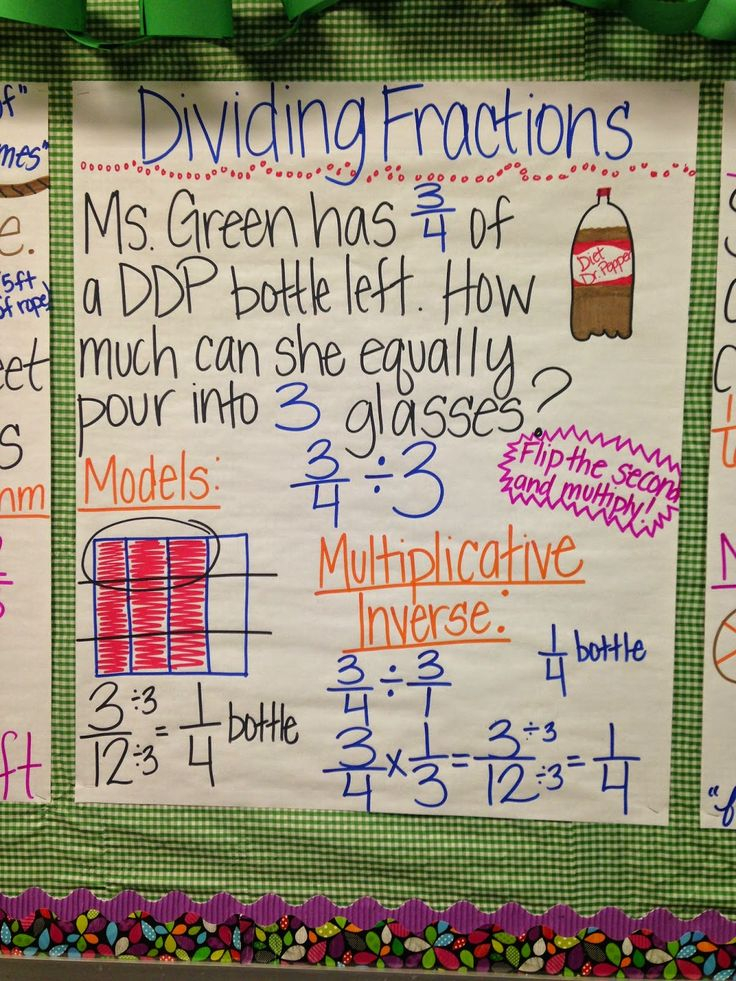 Dividing Fractions
Ms. Green has 3/4 of
a DDP bottle left. How
much can she equally
pour into 3 glasses?
Diet
Dr. Pepper
3/4 ÷ 3
Flip the second
and multiply!
Models:
3/12 ÷3/÷3 = 1/4 bottle
Multiplicative
Inverse:
3/4 ÷ 3/1
1/4 bottle
3/4 x 1/3 = 3/12 ÷3/÷3 = 1/4
of"
mes"
e.
5ft
of rope)
eet
s
nm
ft